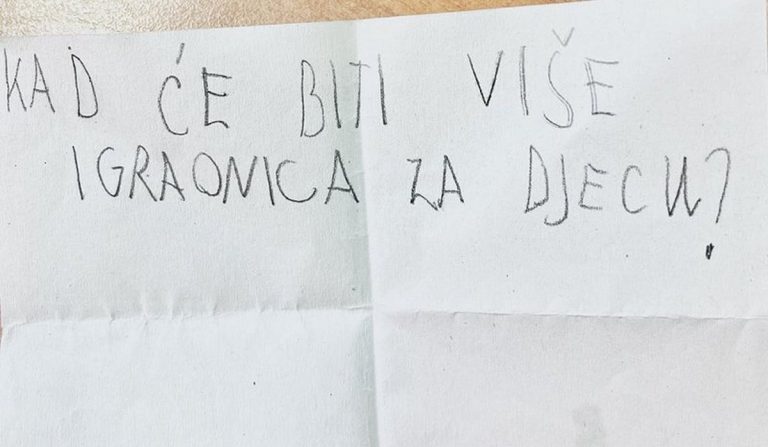 KAD ĆE BITI VIŠE
IGRAONICA ZA DJECU?